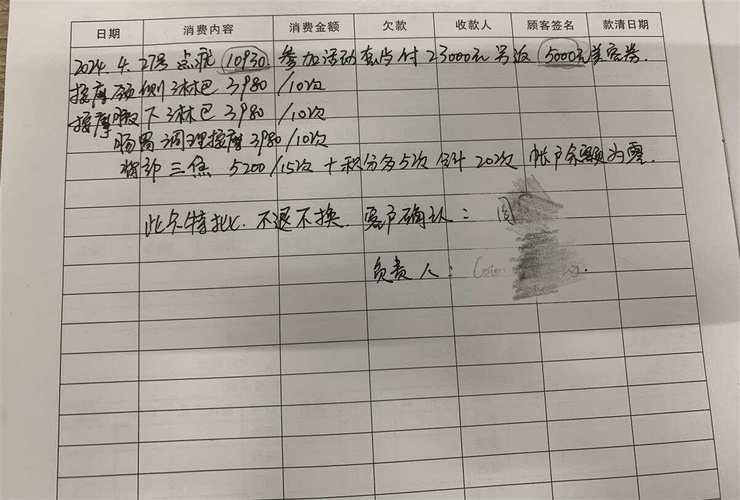 日期 消费内容 消费金额 欠款 收款人 顾客签名 款清日期
2024.4.27号 点疣 10930 参加活动套内付 23000元 另返 5000元美容券
按摩颈侧淋巴 3980 /10次
按摩腋下淋巴 3980 /10次
肠胃调理按摩 3980 /10次
背部三焦 5200 /15次 + 积分多5次 合计20次 帐户余额为零.
此卡特批. 不退不换. 客户确认: 周
负责人: